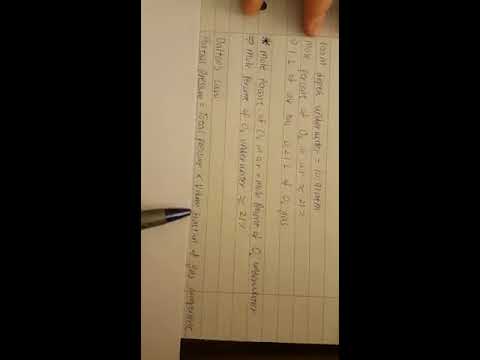 100m depth underwater = 10.91atm
Mole percent of O₂ in air ≈ 21%
0.1 L of air has 0.021 L of O₂ gas
* Mole percent of O₂ in air = mole percent of O₂ underwater
⇒ Mole percent of O₂ underwater ≈ 21%
Dalton's Law
Partial pressure = Total pressure × Volume fraction of gas component